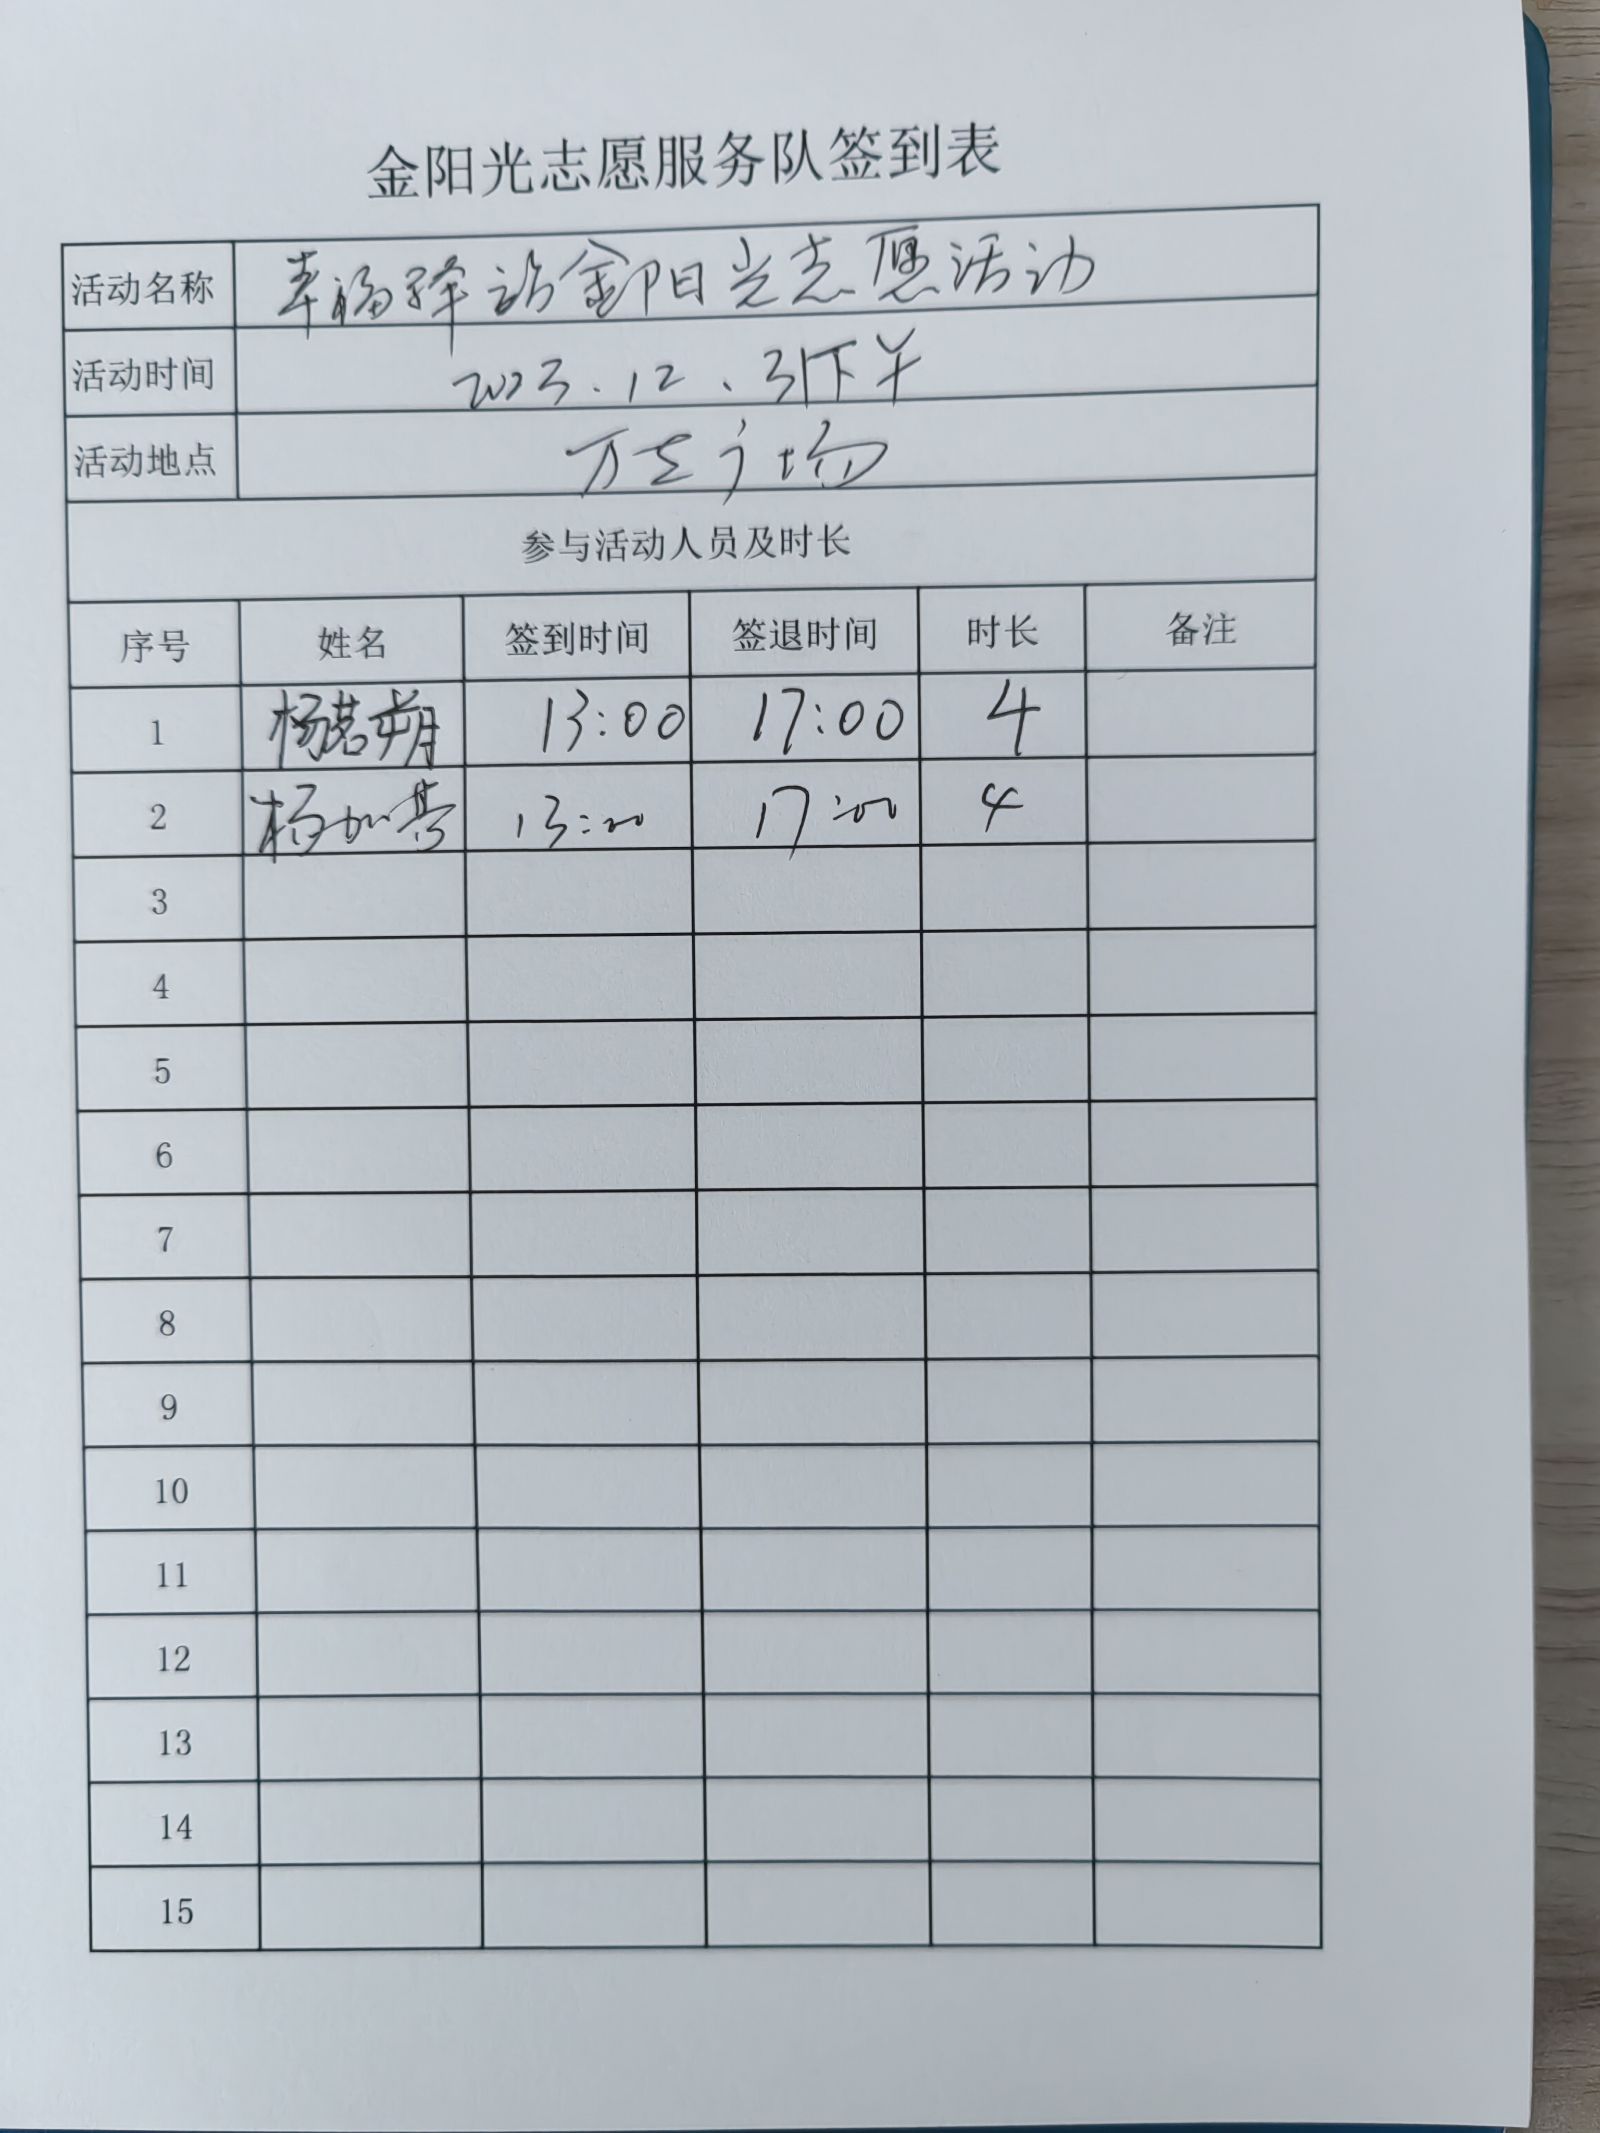 金阳光志愿服务队签到表
活动名称 幸福驿站金阳光志愿活动
活动时间 2023.12.31下午
活动地点 万达广场
参与活动人员及时长
序号 姓名 签到时间 签退时间 时长 备注
1 杨若朔 13:00 17:00 4
2 杨加 13:00 17:00 4
3
4
5
6
7
8
9
10
11
12
13
14
15